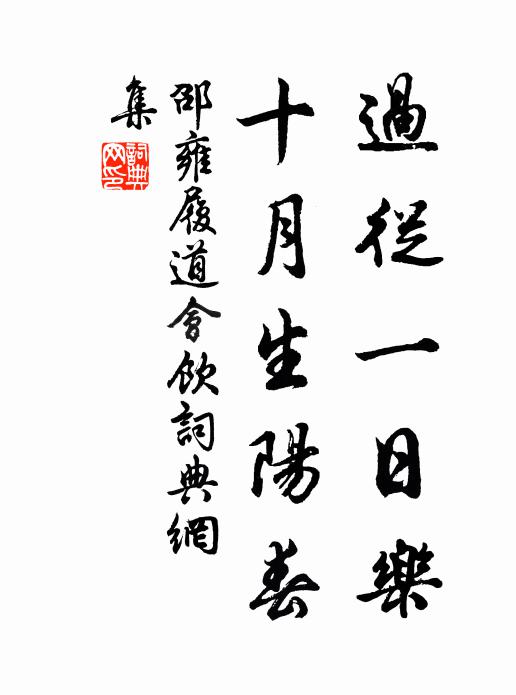 過從一日樂
十月生陽春
邵雍履道會飲詞典網
集
詞典網印